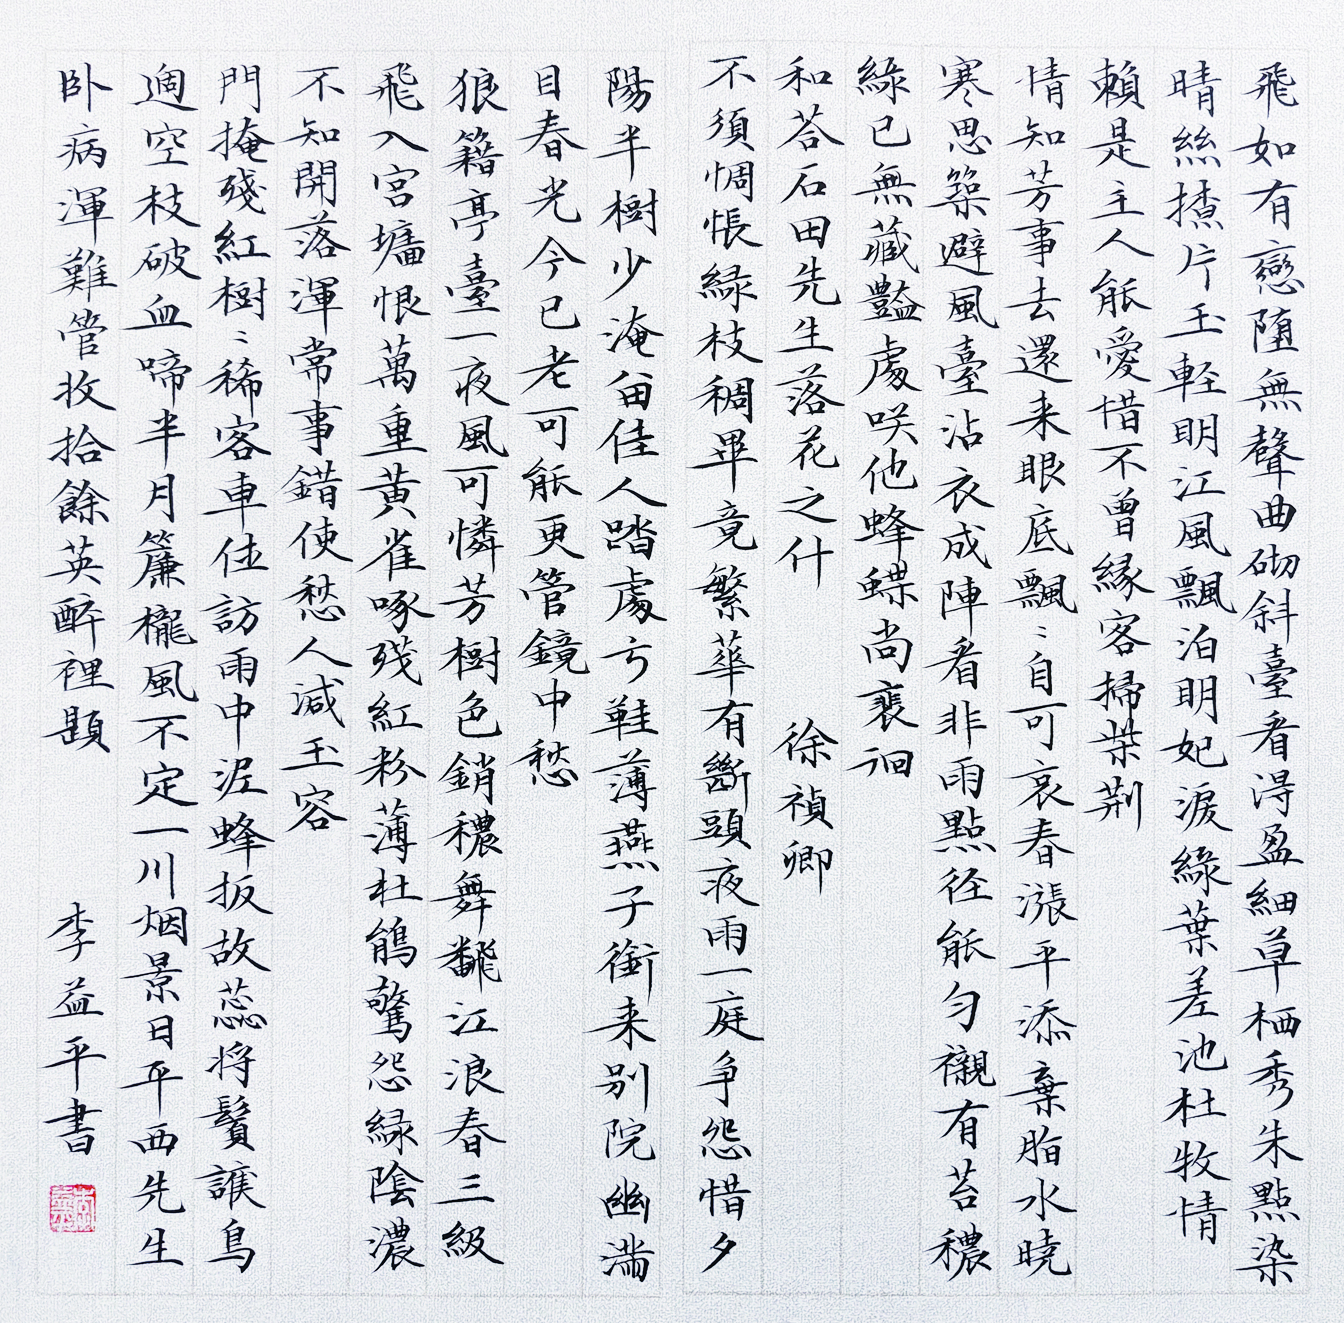 飛如有戀墮無聲曲砌斜臺看得盈細草栖秀朱點染
晴絲擡片玉輕明江風飄泊明妃淚綠葉差池杜牧情
賴是主人能愛惜不曾緣客掃柴荆
情知芳事去還来眼底飄〻自可哀春漲平添棄脂水曉
寒思築避風臺沾衣成陣看非雨點径能勻襯有苔穠
綠已無藏豔處咲他蜂蝶尚裵徊
和荅石田先生落花之什　徐禎卿
不須惆悵緑枝稠畢竟繁華有斷頭夜雨一庭争怨惜夕
陽半樹少淹留佳人踏處弓鞋薄燕子銜来别院幽滿
目春光今已老可能更管鏡中愁
狼籍亭臺一夜風可憐芳樹色銷穠舞飜江浪春三級
飛入宮墻恨萬重黄雀啄殘紅粉薄杜鵑驚怨緑陰濃
不知開落渾常事錯使愁人減玉容
門掩殘紅樹〻稀客車佳訪雨中泥蜂扳故蕊将鬚護鳥
遶空枝破血啼半月簾櫳風不定一川烟景日平西先生
卧病渾難管收拾餘英醉裡題
李益平書